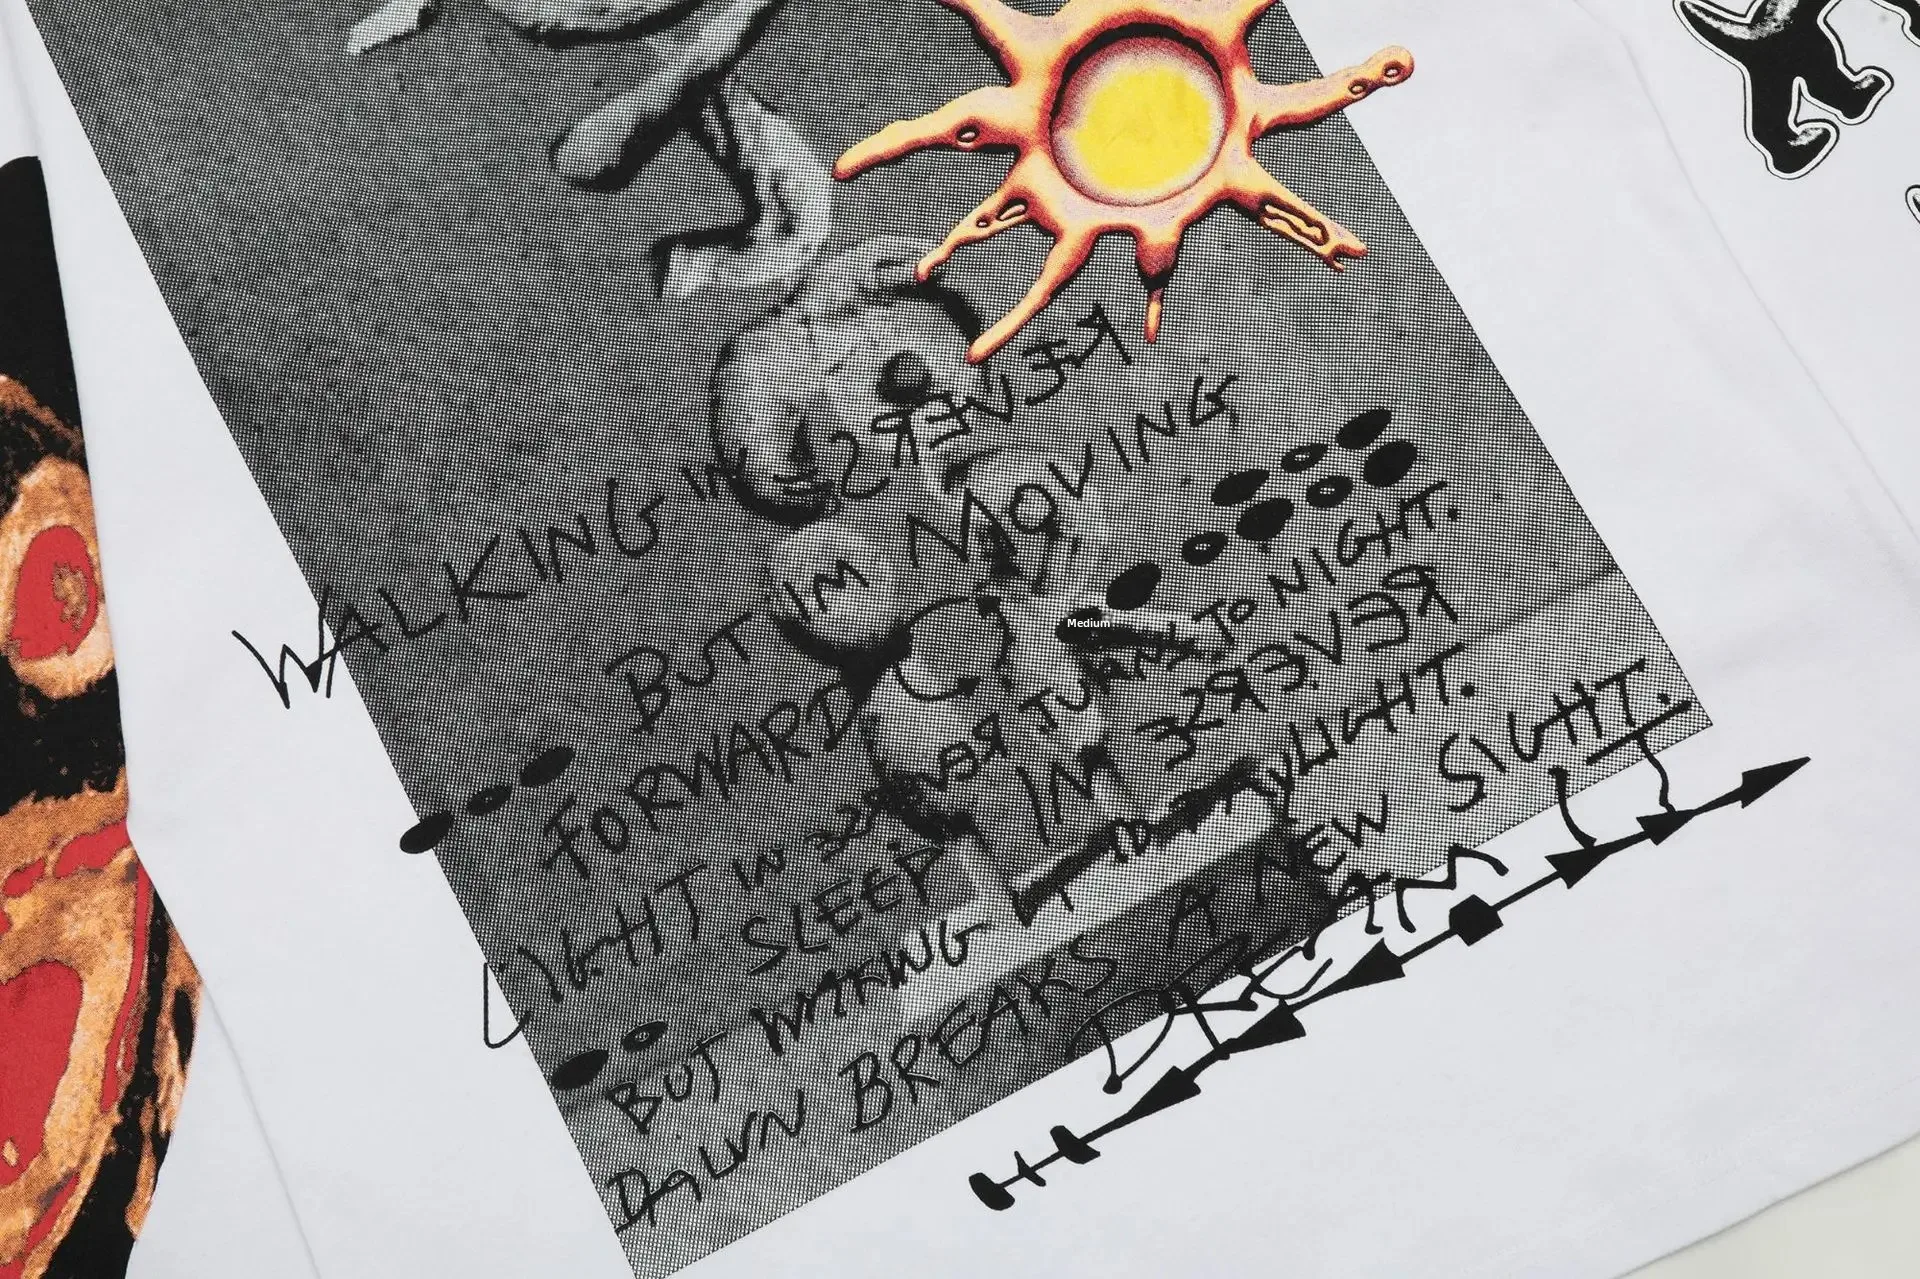 WALKING IN REVERSE
BUT IM MOVING
FORWARD.
LIGHT IN REVERSE TURNX TO NIGHT.
SLEEP IM REVERSE
BUT WAKING LT TO DAYLIGHT.
DAWN BREAKS A NEW SIGHT.
DREAM LT
Medium